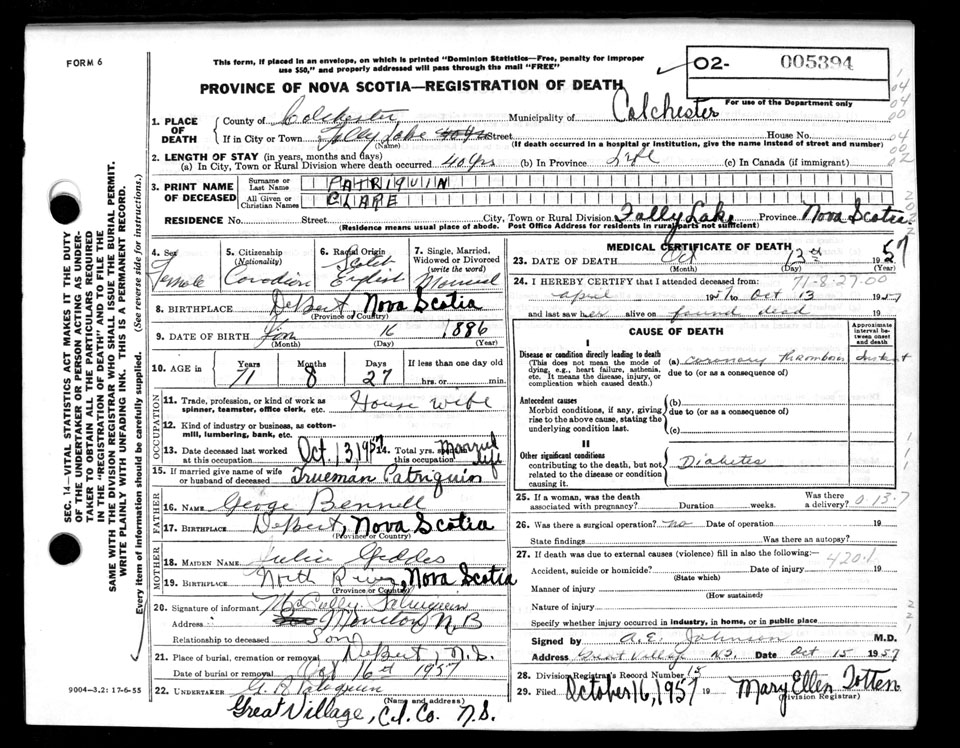 FORM 6
This form, if placed in an envelope, on which is printed "Dominion Statistics—Free, penalty for improper
use $50," and properly addressed will pass through the mail "FREE"
O2- 005394
PROVINCE OF NOVA SCOTIA—REGISTRATION OF DEATH
For use of the Department only
1. PLACE OF DEATH County of Colchester Municipality of Colchester
If in City or Town Folly Lake Street House No.
(Name) (If death occurred in a hospital or institution, give the name instead of street and number)
2. LENGTH OF STAY (in years, months and days)
(a) In City, Town or Rural Division where death occurred 40 yrs (b) In Province Life (c) In Canada (if immigrant)
3. PRINT NAME OF DECEASED Surname or Last Name PATRIQUIN
All Given or Christian Names CLARE
RESIDENCE No. Street City, Town or Rural Division Folly Lake Province Nova Scotia
(Residence means usual place of abode. Post Office Address for residents in rural parts not sufficient)
4. Sex Female
5. Citizenship (Nationality) Canadian
6. Racial Origin English
7. Single, Married, Widowed or Divorced (write the word) Married
8. BIRTHPLACE DeBert, Nova Scotia
(Province or Country)
9. DATE OF BIRTH Jan 16 1886
(Month) (Day) (Year)
10. AGE in Years 71 Months 8 Days 27 If less than one day old hrs. or min.
OCCUPATION
11. Trade, profession, or kind of work as spinner, teamster, office clerk, etc. House wife
12. Kind of industry or business, as cotton-mill, lumbering, bank, etc.
13. Date deceased last worked at this occupation Oct, 13, 1957 14. Total yrs. spent in this occupation Married life
15. If married give name of wife or husband of deceased Trueman Patriquin
FATHER
16. Name George Bennell
17. BIRTHPLACE DeBert, Nova Scotia
(Province or Country)
MOTHER
18. MAIDEN NAME Julia Geddes
19. BIRTHPLACE North River, Nova Scotia
(Province or Country)
20. Signature of informant Patriquin
Address Moncton N B
Relationship to deceased Son
21. Place of burial, cremation or removal DeBert, N.S.
Date of burial or removal Oct 16th 1957
22. UNDERTAKER G. R. Patriquin
Great Village, Col. Co. N.S.
9004—3.2: 17-6-55
SEC. 14—VITAL STATISTICS ACT MAKES IT THE DUTY
OF THE UNDERTAKER OR PERSON ACTING AS UNDER-
TAKER TO OBTAIN ALL THE PARTICULARS REQUIRED
IN THE "REGISTRATION OF DEATH" AND TO FILE THE
SAME WITH THE DIVISION REGISTRAR WHO SHALL ISSUE THE BURIAL PERMIT.
WRITE PLAINLY WITH UNFADING INK. THIS IS A PERMANENT RECORD.
Every item of information should be carefully supplied. (See reverse side for instructions.)
MEDICAL CERTIFICATE OF DEATH
23. DATE OF DEATH Oct 13th 1957
(Month) (Day) (Year)
71-8-27-00
24. I HEREBY CERTIFY that I attended deceased from:
April 1957 to Oct 13 1957
and last saw her alive on found dead
CAUSE OF DEATH
Approximate interval between onset and death
I
Disease or condition directly leading to death
(This does not mean the mode of dying, e.g., heart failure, asthenia, etc. It means the disease, injury, or complication which caused death.)
(a) Coronary Thrombosis Instant
due to (or as a consequence of)
Antecedent causes
Morbid conditions, if any, giving rise to the above cause, stating the underlying condition last.
(b)
due to (or as a consequence of)
(c)
II
Other significant conditions
contributing to the death, but not related to the disease or condition causing it.
Diabetes
25. If a woman, was the death associated with pregnancy? Duration weeks. Was there a delivery? 0 13.7
26. Was there a surgical operation? no Date of operation 19
State findings Was there an autopsy?
27. If death was due to external causes (violence) fill in also the following:— 420.1
Accident, suicide or homicide? Date of injury 19
(State which)
Manner of injury
(How sustained)
Nature of injury
Specify whether injury occurred in industry, in home, or in public place
Signed by A. E. Johnson M.D.
Address Great Village N.S. Date Oct 15 1957
28. Division Registrar's Record Number 15
29. Filed October 16, 1957 19 Mary Ellen Totten
(Division Registrar)